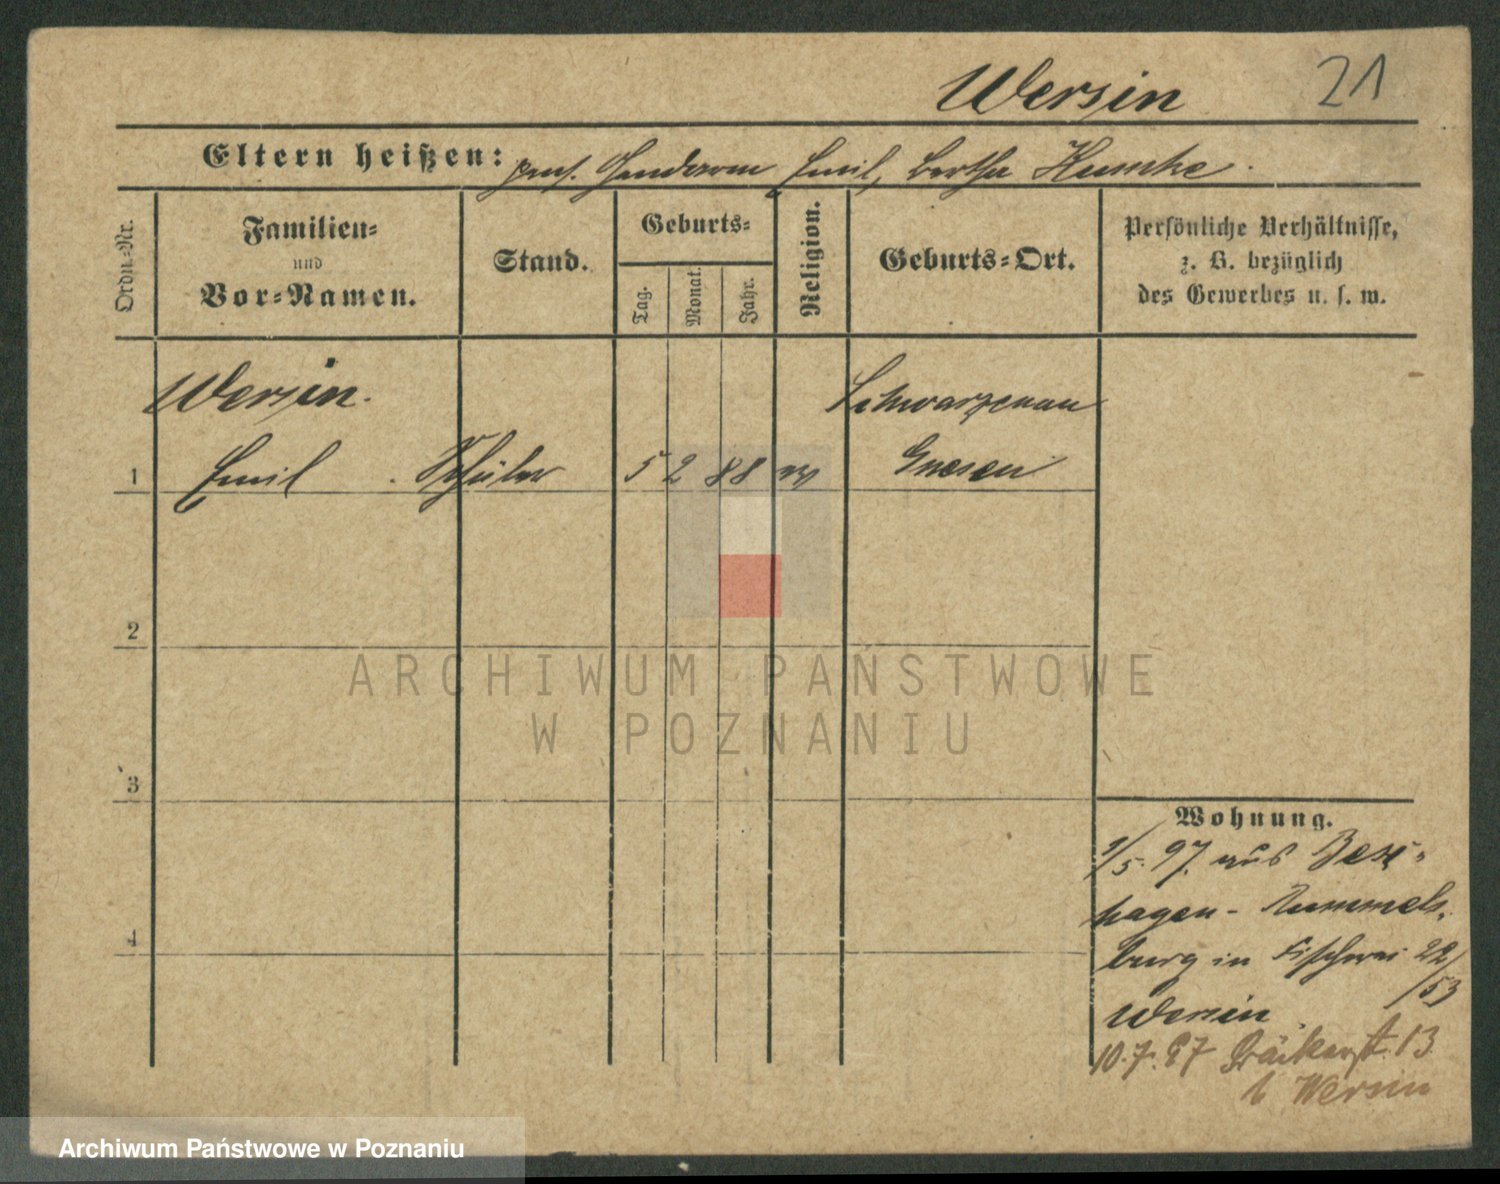 Wersin 21
Eltern heißen: pens. Gendarm Emil, Bertha Kumke.
Ordn.-Nr. Familien- und Vor-Namen. Stand. Geburts- Tag. Monat. Jahr. Religion. Geburts-Ort. Persönliche Verhältnisse, z. B. bezüglich des Gewerbes u. s. w.
Wersin. Schwarzenau
1 Emil Schüler 5 2 88 Gnesen
2
ARCHIWUM PAŃSTWOWE
W POZNANIU
3
Wohnung.
1/5. 97. aus
hagen - Rummels-
4
burg in Fischerei 22/53
Wersin
10.7.97 Bäckerst. 13
b Wersin
Archiwum Państwowe w Poznaniu